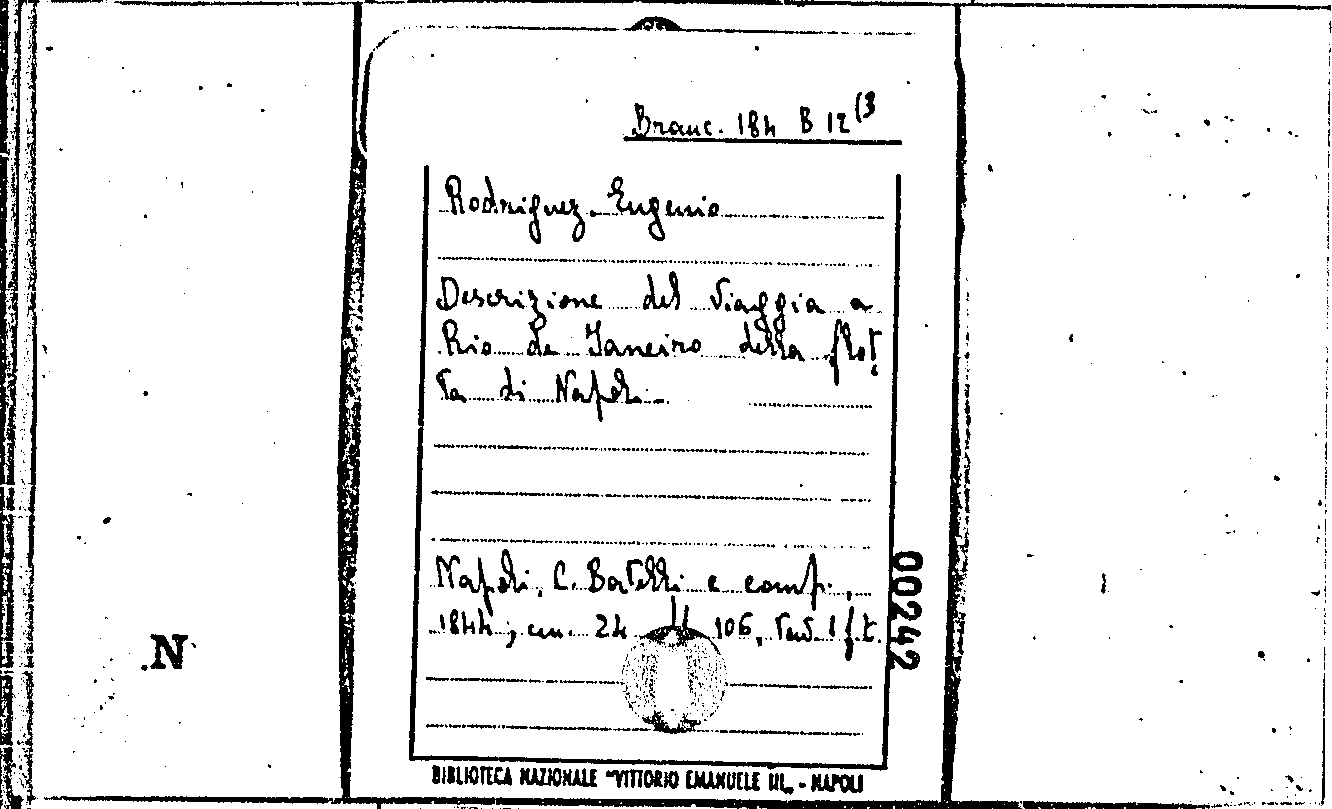 Branc. 184 B 12 (3
Rodriguez Eugenio
Descrizione del viaggio a
Rio de Janeiro della flot
ta di Napoli
Napoli, C. Batelli e comp.,
1844, cm. 24 106, tav. 1 f. t.
00242
.N
BIBLIOTECA NAZIONALE "VITTORIO EMANUELE III„ - NAPOLI